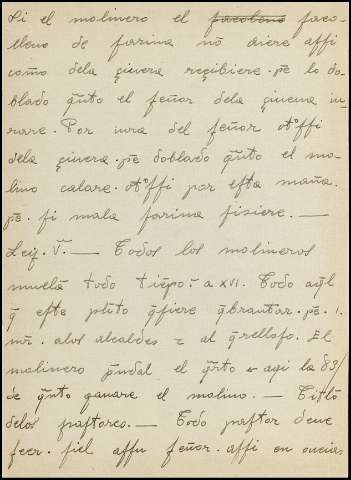 Si el molinero el facoleno faco-
lleno de farina nõ diere assi
como dela çiuera reçibiere. pe lo do-
blado q̃nto el señor dela çiuera iu-
rare. Por iura del señor otossi
dela çiuera. pe doblado q̃nto el mo-
lino calare. otossi por esta maña.
pe. si mala farina fisiere. —
Leij. V. — Todos los molineros
muelã todo tiẽpo. a XVI. Todo aq̃l
q̃ este ptito q̃siere q̃brantar. pe. 1.
mr. alos alcaldes z al q̃relloso. El
molinero el q̃rto aqi la
de q̃nto ganare el molino. — Titlõ
delos pastores. — Todo pastor deue
seer. fiel assu señor. assi en oueias